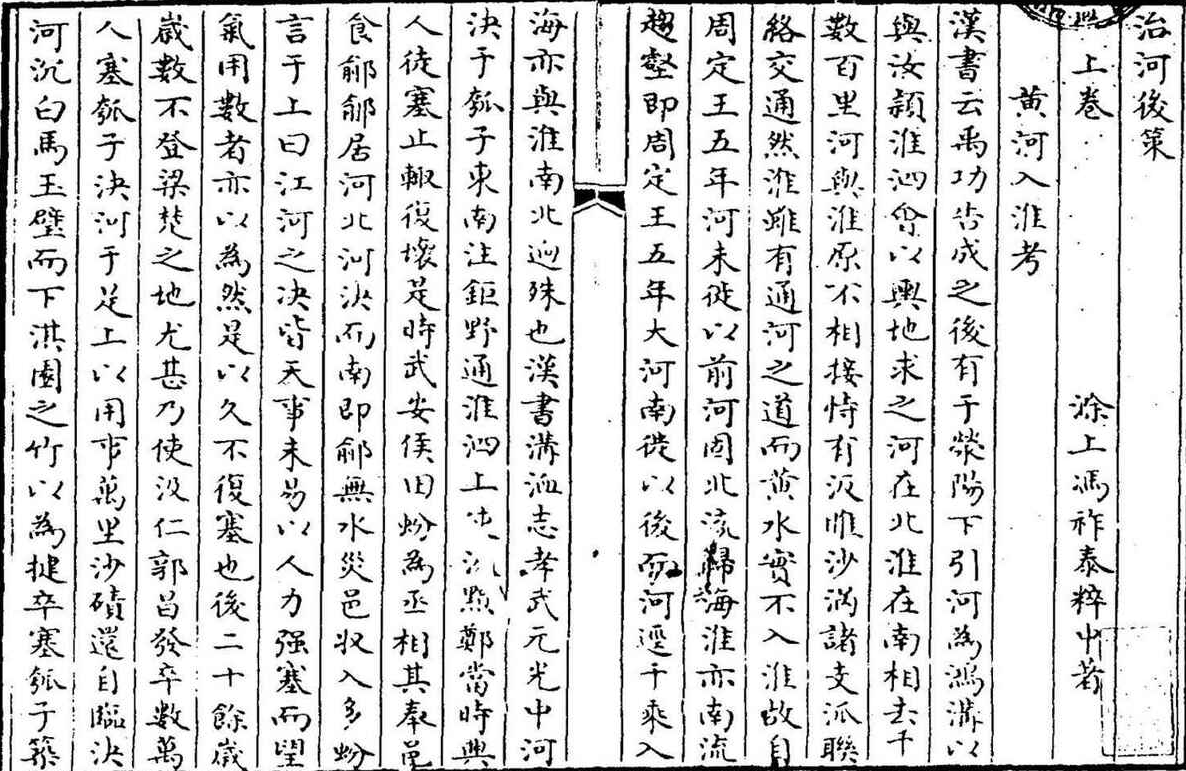 治河後策
上卷 涂上馮祚泰粹中著
黃河入淮考
漢書云禹功告成之後有于滎陽下引河為鴻溝以
與汝潁淮泗會以輿地求之河在北淮在南相去千
數百里河與淮原不相接恃有汳睢沙渦諸支派聯
絡交通然淮雖有通河之道而黃水實不入淮故自
周定王五年河未徙以前河固北流歸海淮亦南流
趨壑即周定王五年大河南徙以後而河逕千乘入
海亦與淮南北迥殊也漢書溝洫志孝武元光中河
決于瓠子東南注鉅野通淮泗上使汲黯鄭當時興
人徒塞止輙復壞是時武安侯田蚡為丞相其奉邑
食鄃鄃居河北河決而南即鄃無水災邑收入多蚡
言于上曰江河之決皆天事未易以人力强塞而望
氣用數者亦以為然是以久不復塞也後二十餘歲
歲數不登梁楚之地尤甚乃使汲仁郭昌發卒數萬
人塞瓠子決河于是上以用事萬里沙磧還自臨決
河沉白馬玉璧而下淇園之竹以為揵卒塞瓠子築